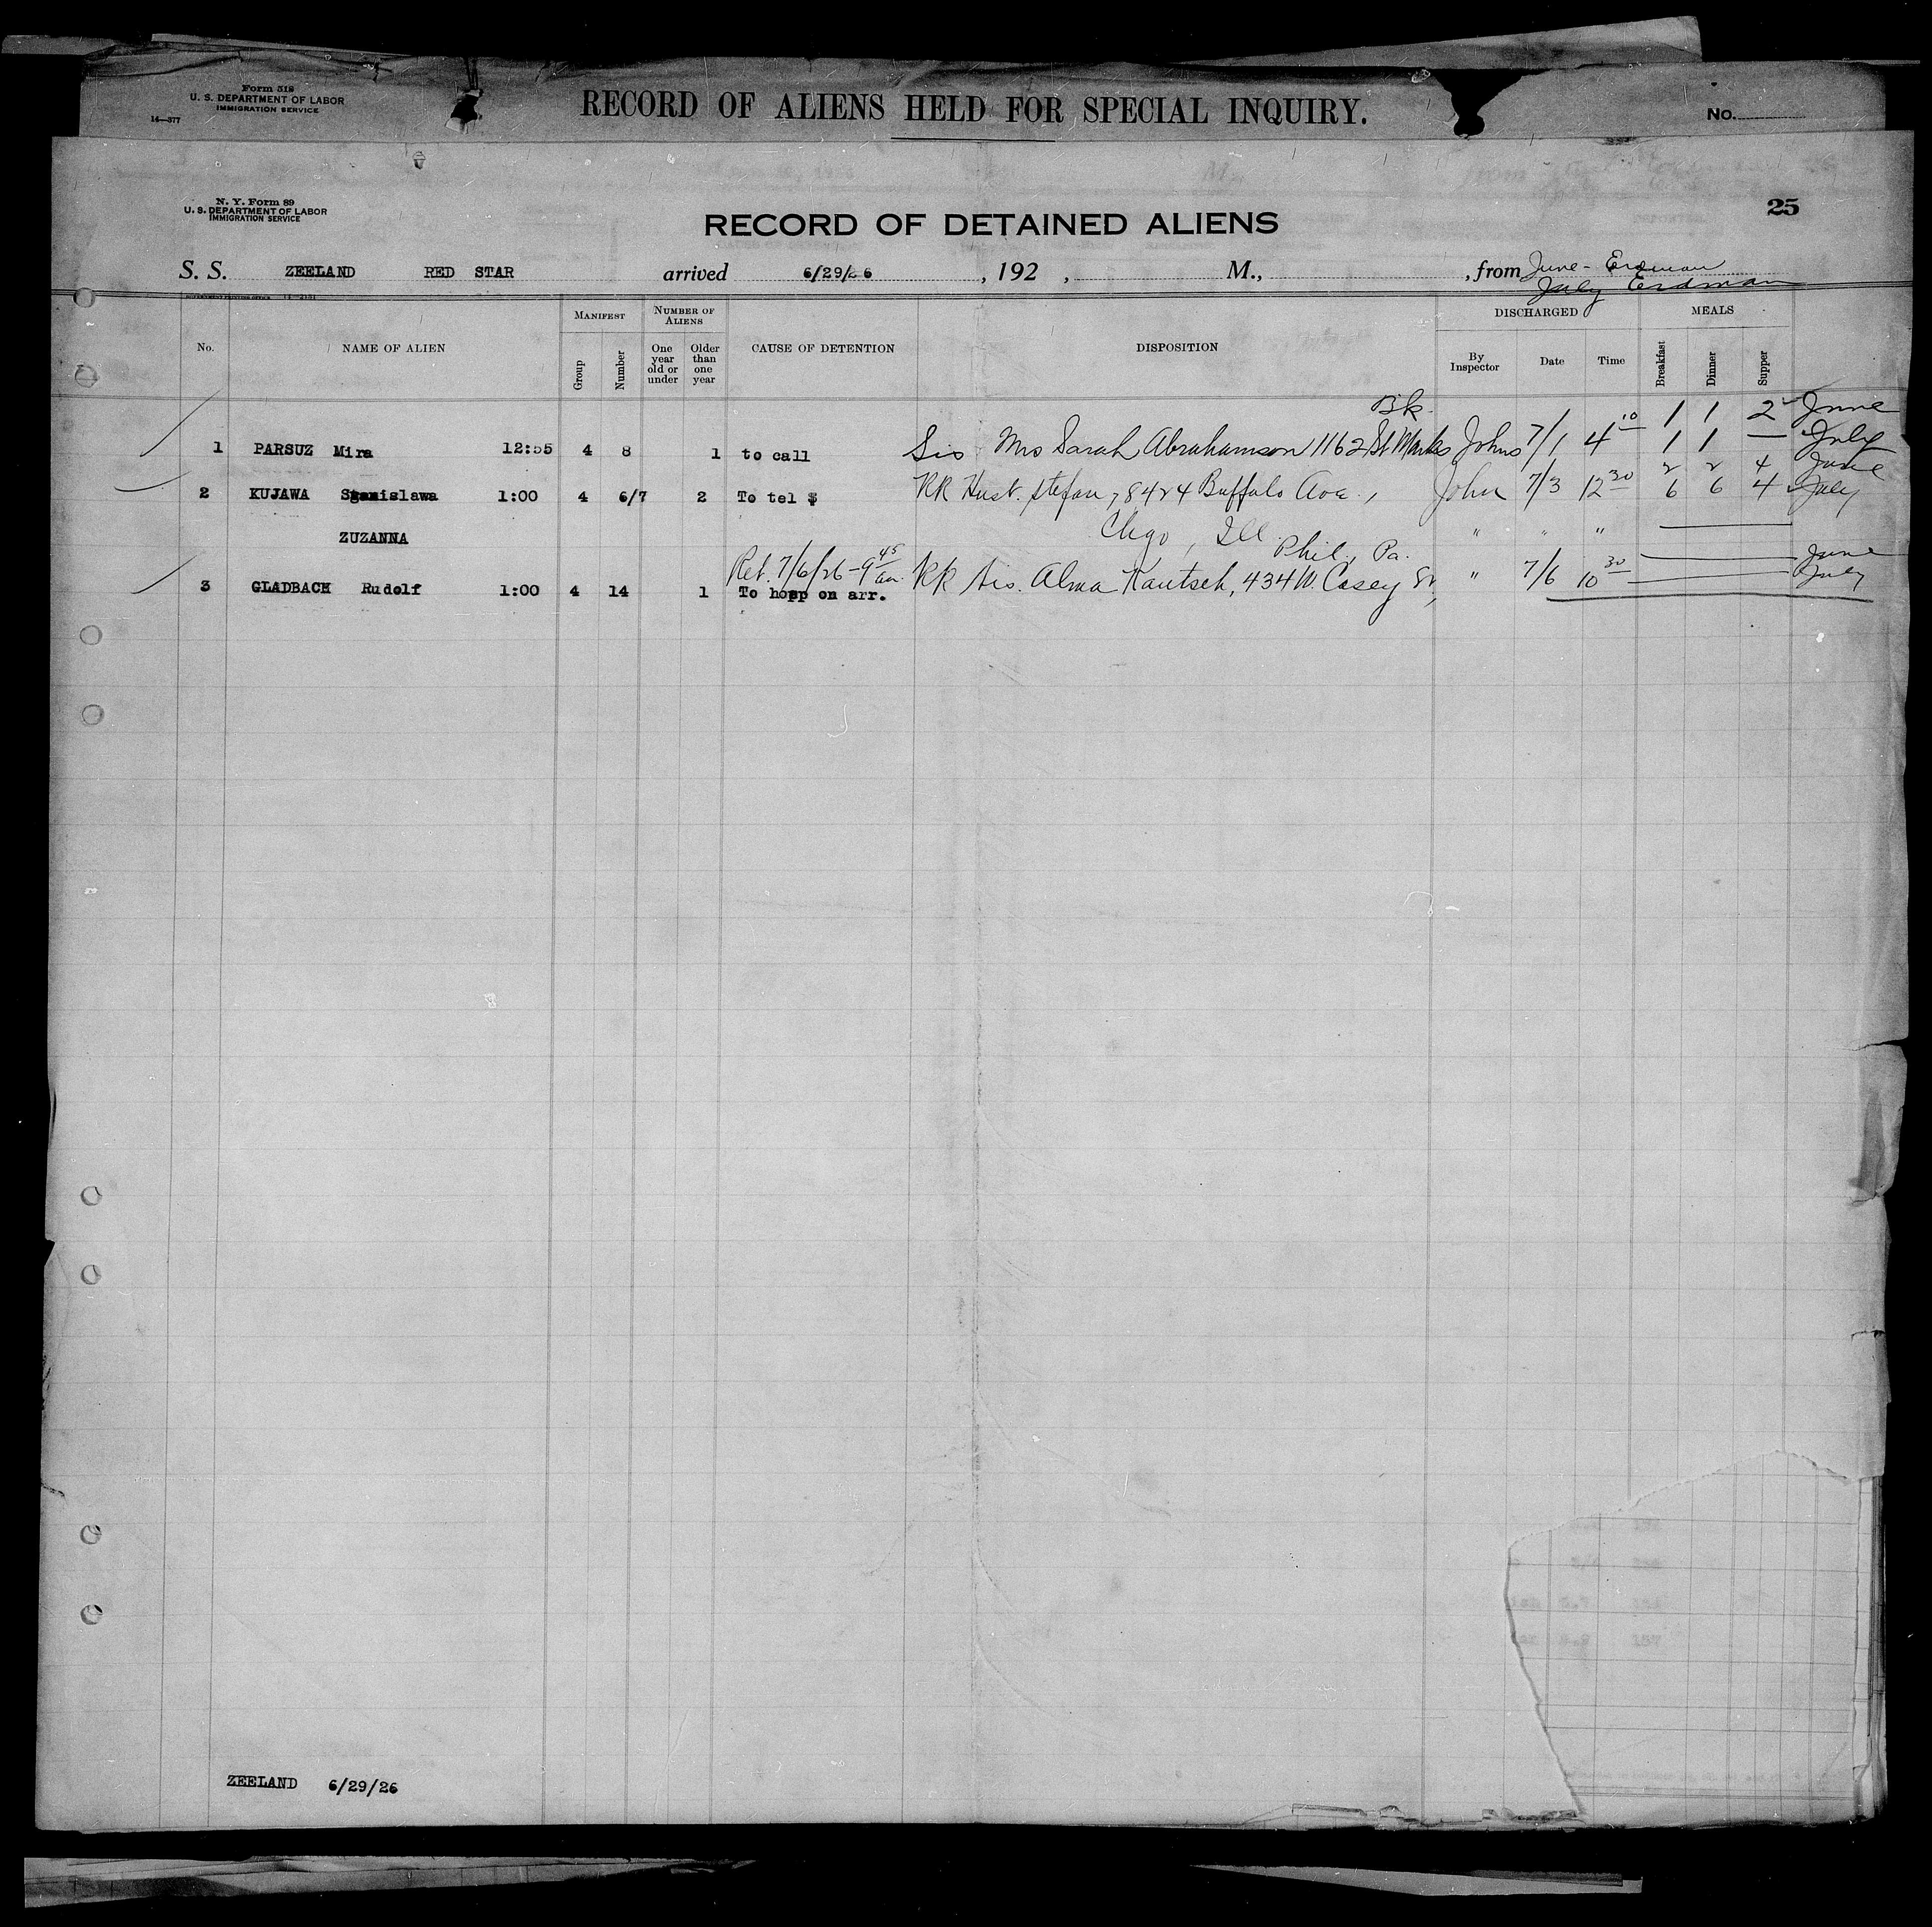 Form 518
U. S. DEPARTMENT OF LABOR
IMMIGRATION SERVICE
14—377
RECORD OF ALIENS HELD FOR SPECIAL INQUIRY.
No.
N. Y. Form 89
U. S. DEPARTMENT OF LABOR
IMMIGRATION SERVICE
25
RECORD OF DETAINED ALIENS
S. S. ZEELAND RED STAR arrived 6/29/26, 192 , M., , from June - Erdman
July Erdman
No. NAME OF ALIEN MANIFEST Group Number NUMBER OF ALIENS One year old or under Older than one year CAUSE OF DETENTION DISPOSITION DISCHARGED By Inspector Date Time MEALS Breakfast Dinner Supper
Bk. 1 1 2 June
1 PARSUZ Mira 12:55 4 8 1 to call Sis Mrs Sarah Abrahamson 1162 St Marks Johns 7/1 4 10 1 1 — July
2 2 4 June
2 KUJAWA Stanislawa 1:00 4 6/7 2 To tel $ RR Husb. Stefan, 8424 Buffalo Ave., John 7/3 12 30 6 6 4 July
ZUZANNA Chgo, Ill. " " "
Ret. 7/6/26 - 9 45 am Phil., Pa. June
3 GLADBACH Rudolf 1:00 4 14 1 To hosp on arr. RR Sis. Alma Kautsch, 434 W. Casey St., " 7/6 10 30 July
ZEELAND 6/29/26